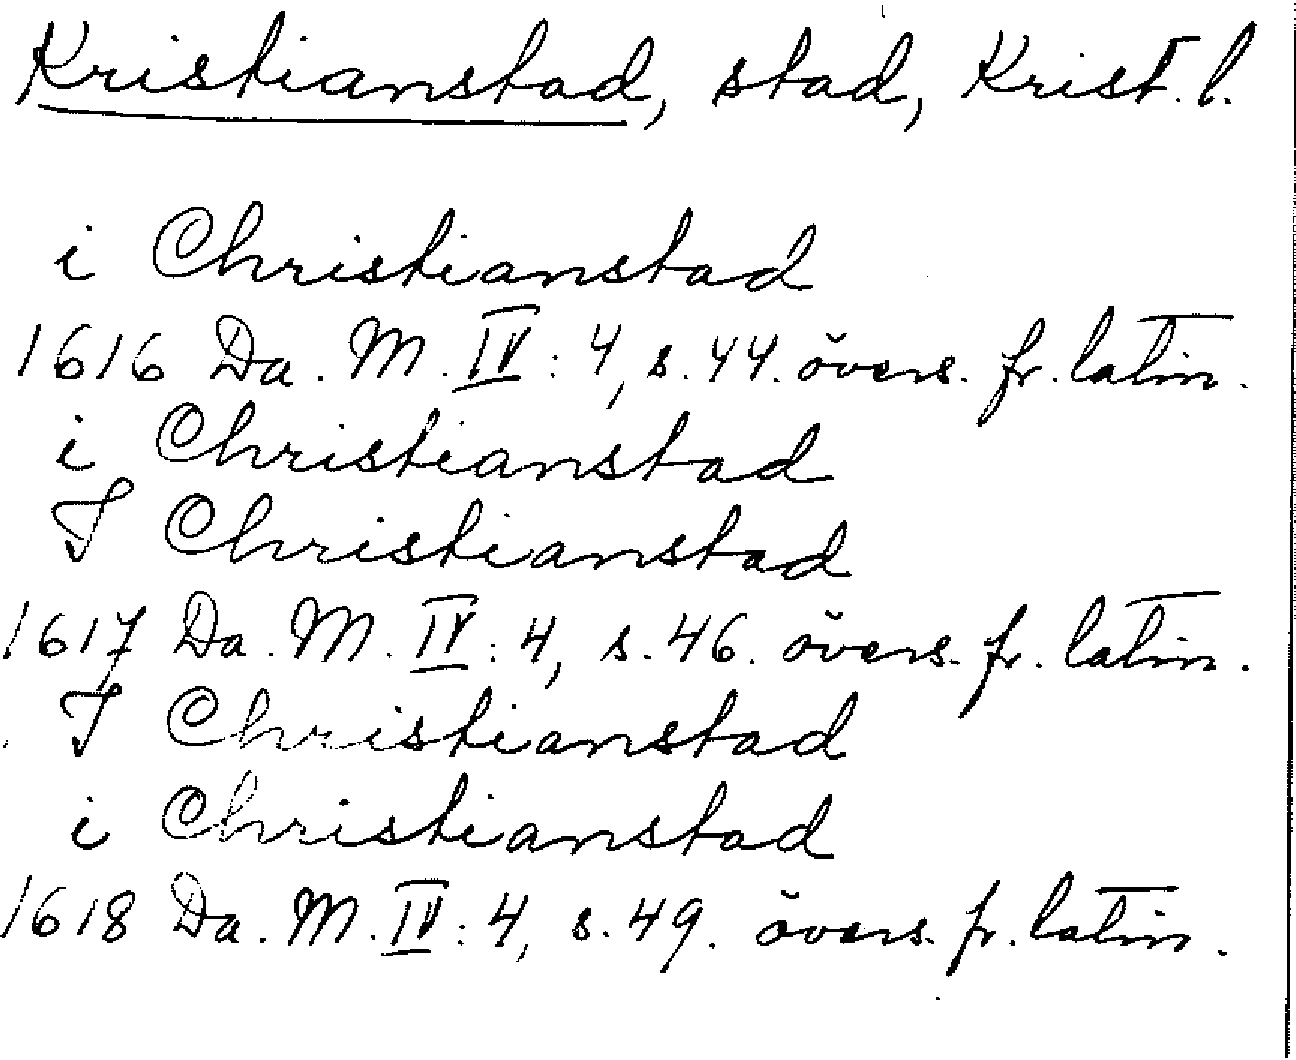 Kristianstad, stad, Krist. l.
i Christianstad
1616 Da. M. IV: 4, s. 44. övers. fr. latin.
i Christianstad
I Christianstad
1617 Da. M. IV: 4, s. 46. övers. fr. latin.
I Christianstad
i Christianstad
1618 Da. M. IV: 4, s. 49. övers. fr. latin.